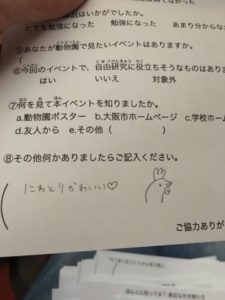 解説はいかがでしたか。
とても勉強になった 勉強になった あまり分からな
⑤あなたが動物園で見たいイベントはありますか。
(
⑥今回のイベントで、自由研究に役立ちそうなものはありま
はい いいえ 対象外
⑦何を見て本イベントを知りましたか。
a.動物園ポスター b.大阪市ホームページ c.学校ホーム
d.友人から e.その他 ( )
⑧その他何かありましたらご記入ください。
( にわとりかわいい♡
ご協力ありが